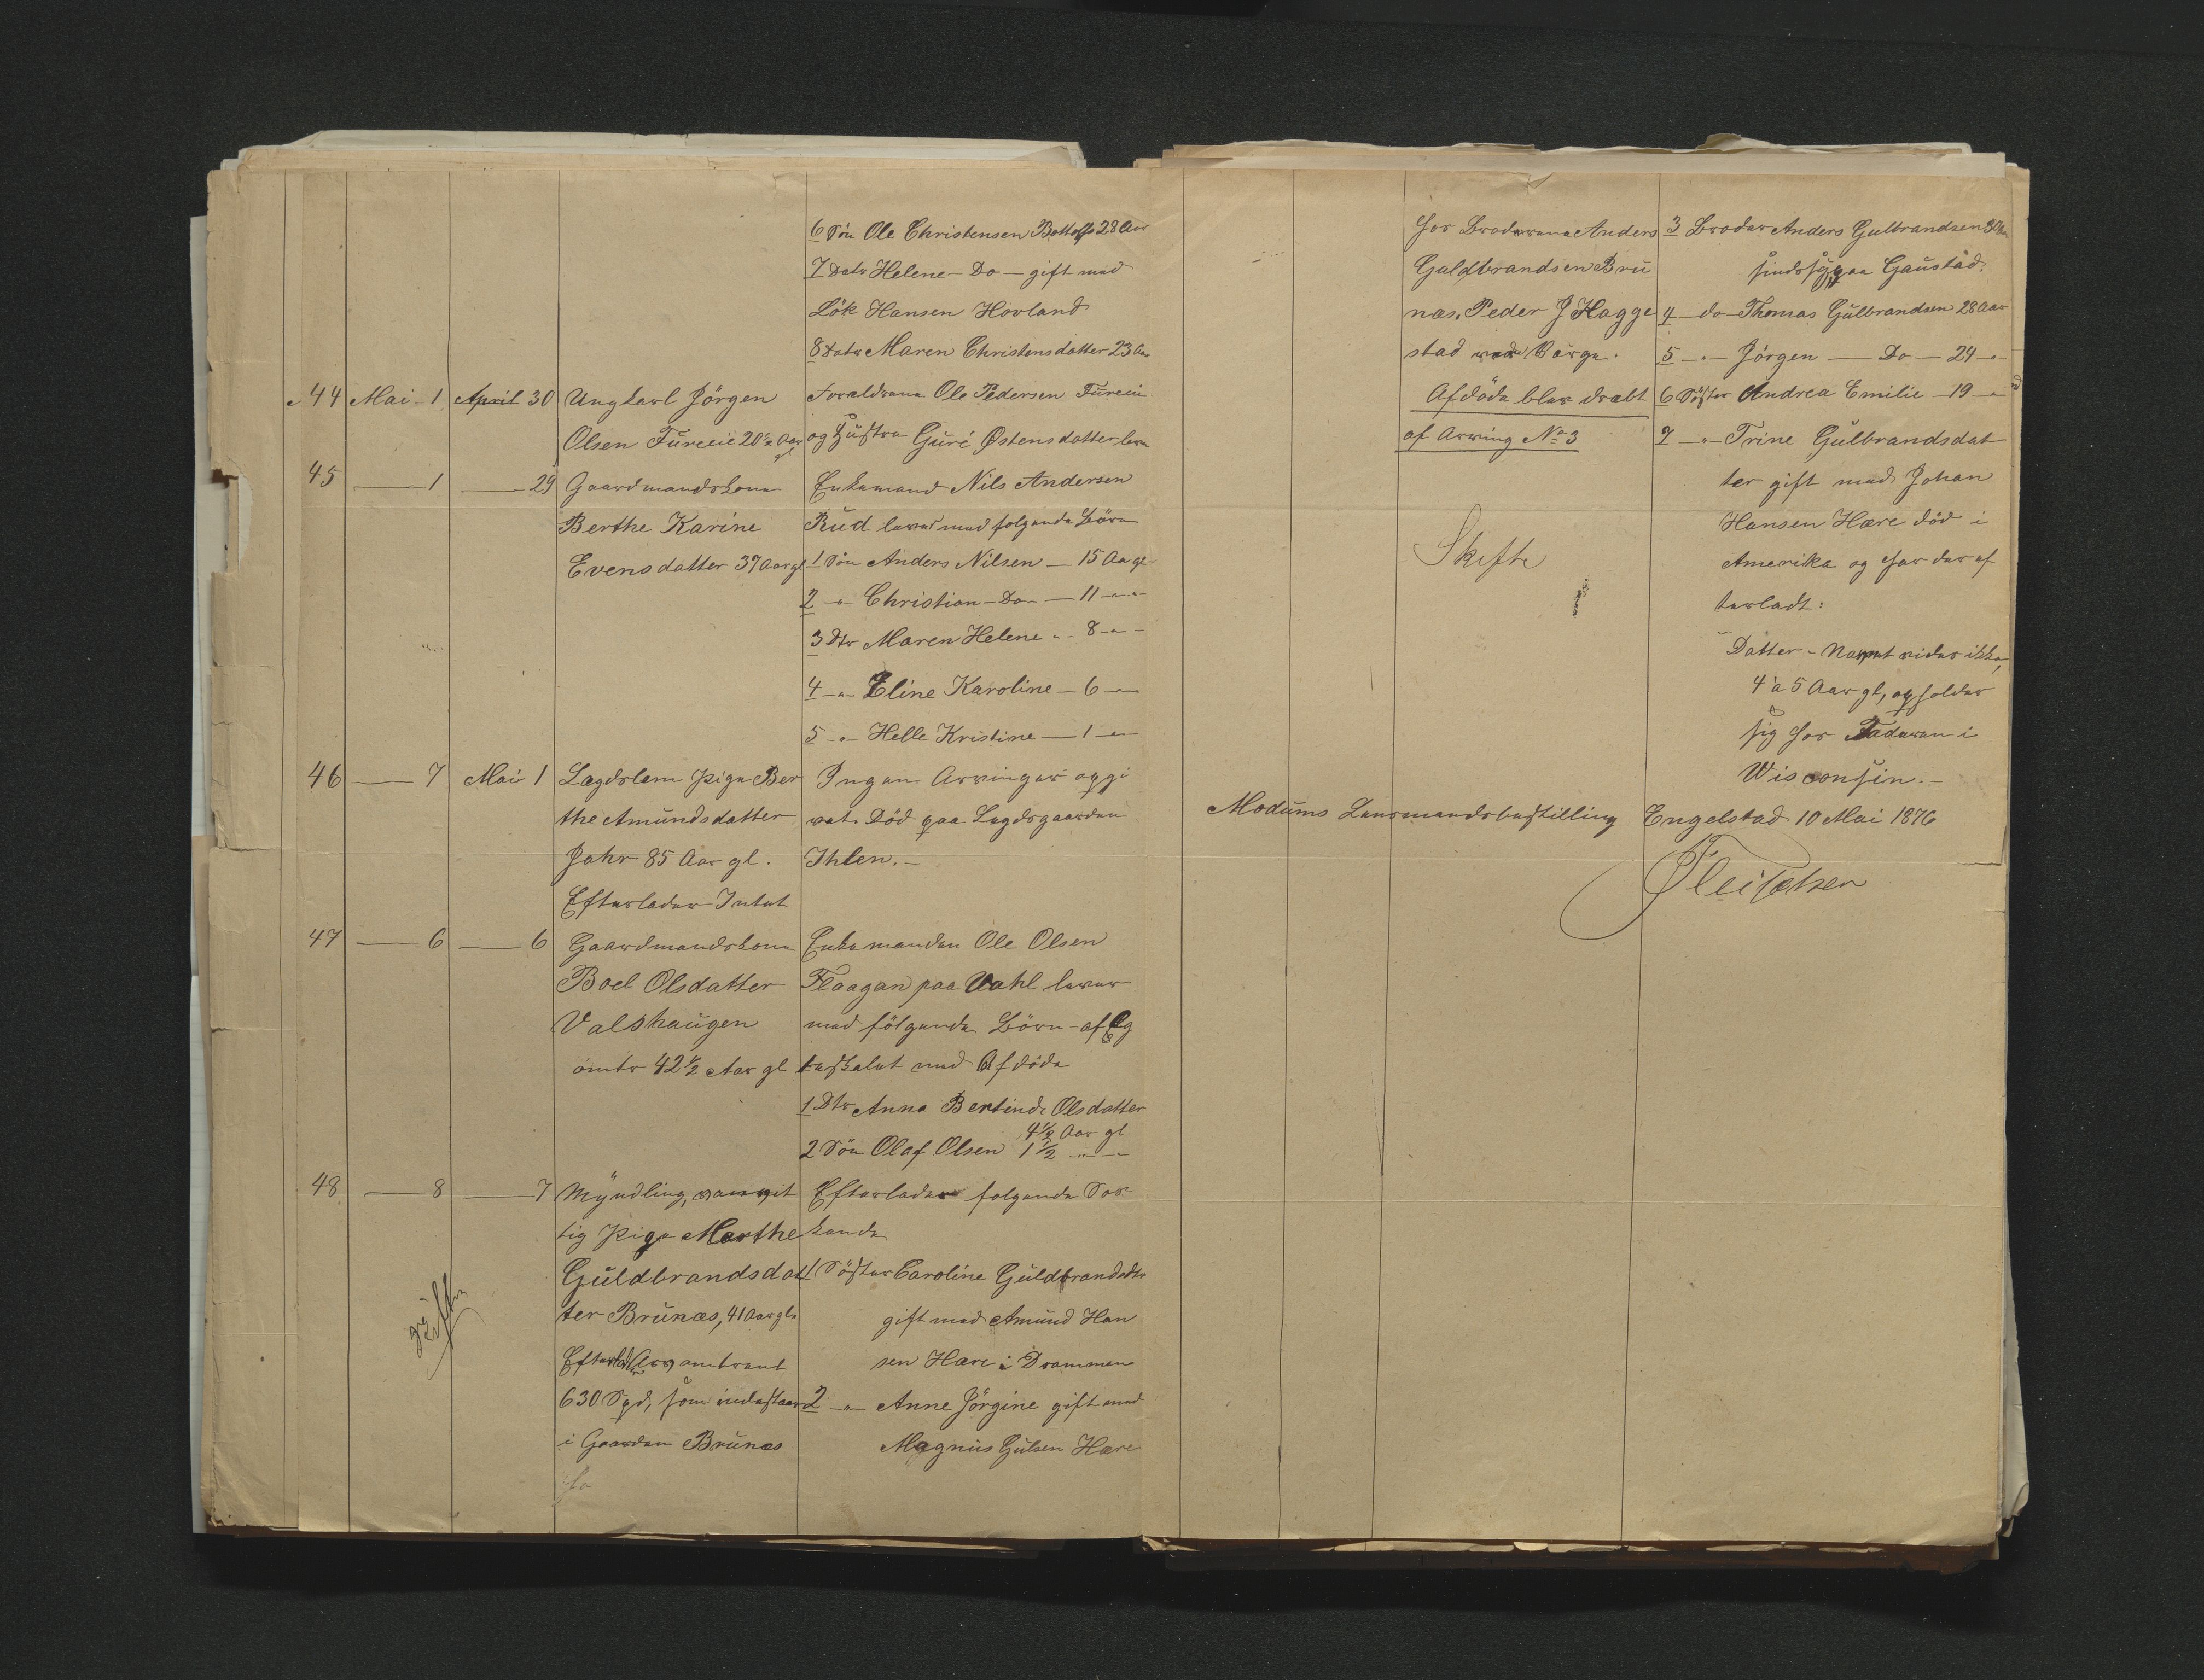 6 Sön Ole Christensen Bottolfs 28 Aar
7 Datr Helene - Do - gift med
Lök Hansen Hovland
8 Datr Maren Christensdatter 23 Aar
44 Mai - 1 April 30 Ungkarl Jörgen Forældrene Ole Pedersen Fureeie
Olsen Fureeie 20½ Aar gl og Hustru Guri Østensdatter leve
45 — 1 — 29 Gaardmandskone Enkemand Nils Andersen
Berthe Karine Rud lever med følgende Börn
Evensdatter 37 Aar gl 1 Sön Anders Nilsen — 15 Aa gl
2 -„- Christian - Do - — 11 -„-
3 Dtr Maren Helene -„- 8 -„-
4 -„- Eline Karoline — 6 -„-
5 -„- Helle Kristine — 1 -„-
46 — 7 Mai 1 Lægdslem Pige Ber Ingen Arvinger opgi
the Amundsdatter vet. Död paa Lægdsgaarden
Jahr 85 Aar gl. Ihlen. -
Efterlader Intet
47 — 6 — 6 Gaardmandskone Enkemanden Ole Olsen
Boel Olsdatter Flaagan paa Vahl lever
Valshaugen med fölgende Börn - af Eg
omtr 42½ Aar gl teskabet med Afdöde
1 Dtr Anna Bertinde Olsdatter
4½ Aar gl
2 Sön Olaf Olsen 1½ -„-
48 — 8 — 7 Myndling, vanvit Efterlader følgende Sös
tig Pige Marthe kende
Guldbrandsdat 1 Söster Caroline Guldbrandsdtr
ter Brunæs, 41 Aar gl. gift med Amund Han
Efterlader Arv omtrent sen Hære i Drammen
630 Spd, som indestaar 2 -„- Anne Jörgine gift med
i Gaarden Brunæs Magnus Gulsen Hære
Skifte
hos Broderene Anders 3 Broder Anders Gulbrandsen
Guldbrandsen Bru sindssyg paa Gaustad.
næs. Peder J Hagge 4 do Thomas Gulbrandsen 28 Aar
stad Værge. 5 -„- Jörgen — Do — 24 -„-
Afdöde blev dræbt 6 Söster Andrea Emilie — 19 -„-
af Arving No 3 7 -„- Trine Gulbrandsdat
ter gift med Johan
Hansen Hære död i
Skifte
Amerika og har der ef
terladt:
Datter - Navnet vides ikke,
4 à 5 Aar gl, opholder
sig hos Faderen i
Wisconsin. -
Modums Lensmandsbestilling Engelstad 10 Mai 1876
Fleischer